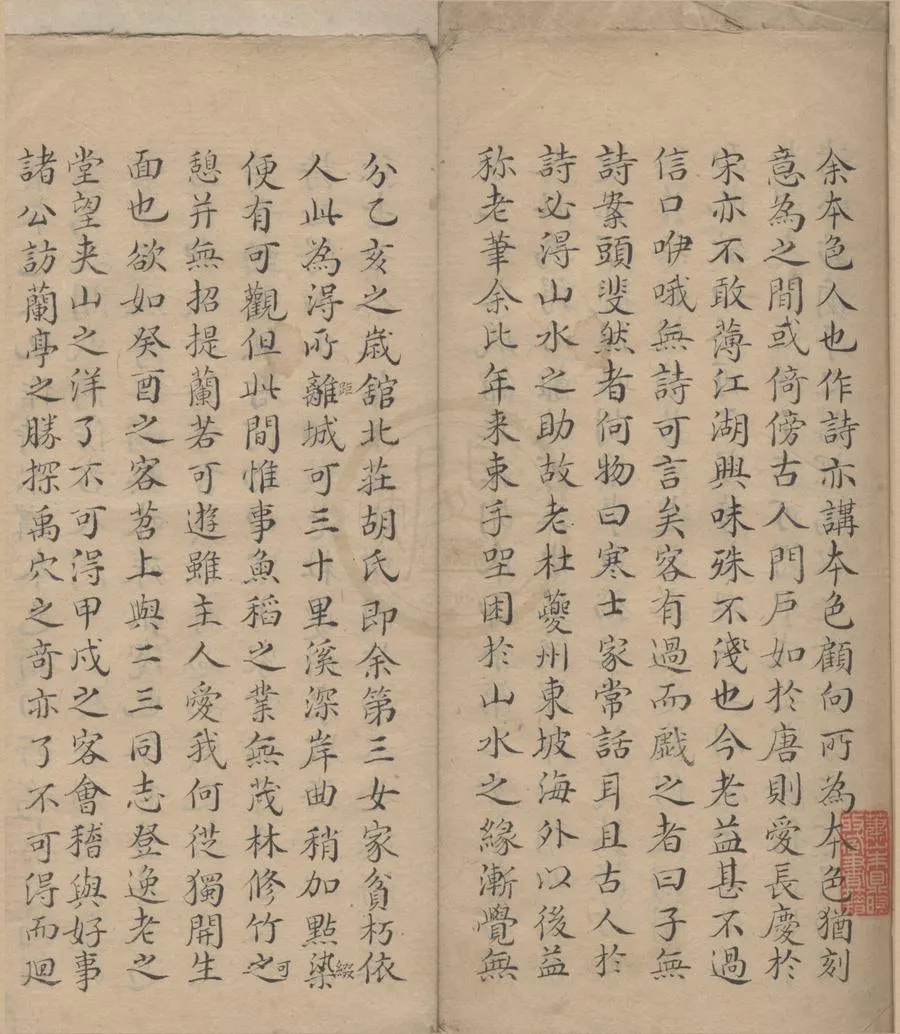 余本色人也作詩亦講本色顧向所為本色猶刻
意為之間或倚傍古人門戶如於唐則愛長慶於
宋亦不敢薄江湖興味殊不淺也今老益甚不過
信口咿哦無詩可言矣客有過而戲之者曰子無
詩案頭斐然者何物曰寒士家常話耳且古人於
詩必得山水之助故老杜夔州東坡海外以後益
称老筆余比年来束手坚困於山水之緣漸覺無
分乙亥之歳舘北莊胡氏即余第三女家貧朽依
人此為得所離城可三十里溪深岸曲稍加點染
距
綴
便有可觀但此間惟事魚稻之業無茂林修竹之
可
憩并無招提蘭若可遊雖主人愛我何從獨開生
面也欲如癸酉之客苕上與二三同志登逸老之
堂望夹山之洋了不可得甲戌之客會稽與好事
諸公訪蘭亭之勝探禹穴之竒亦了不可得而迴